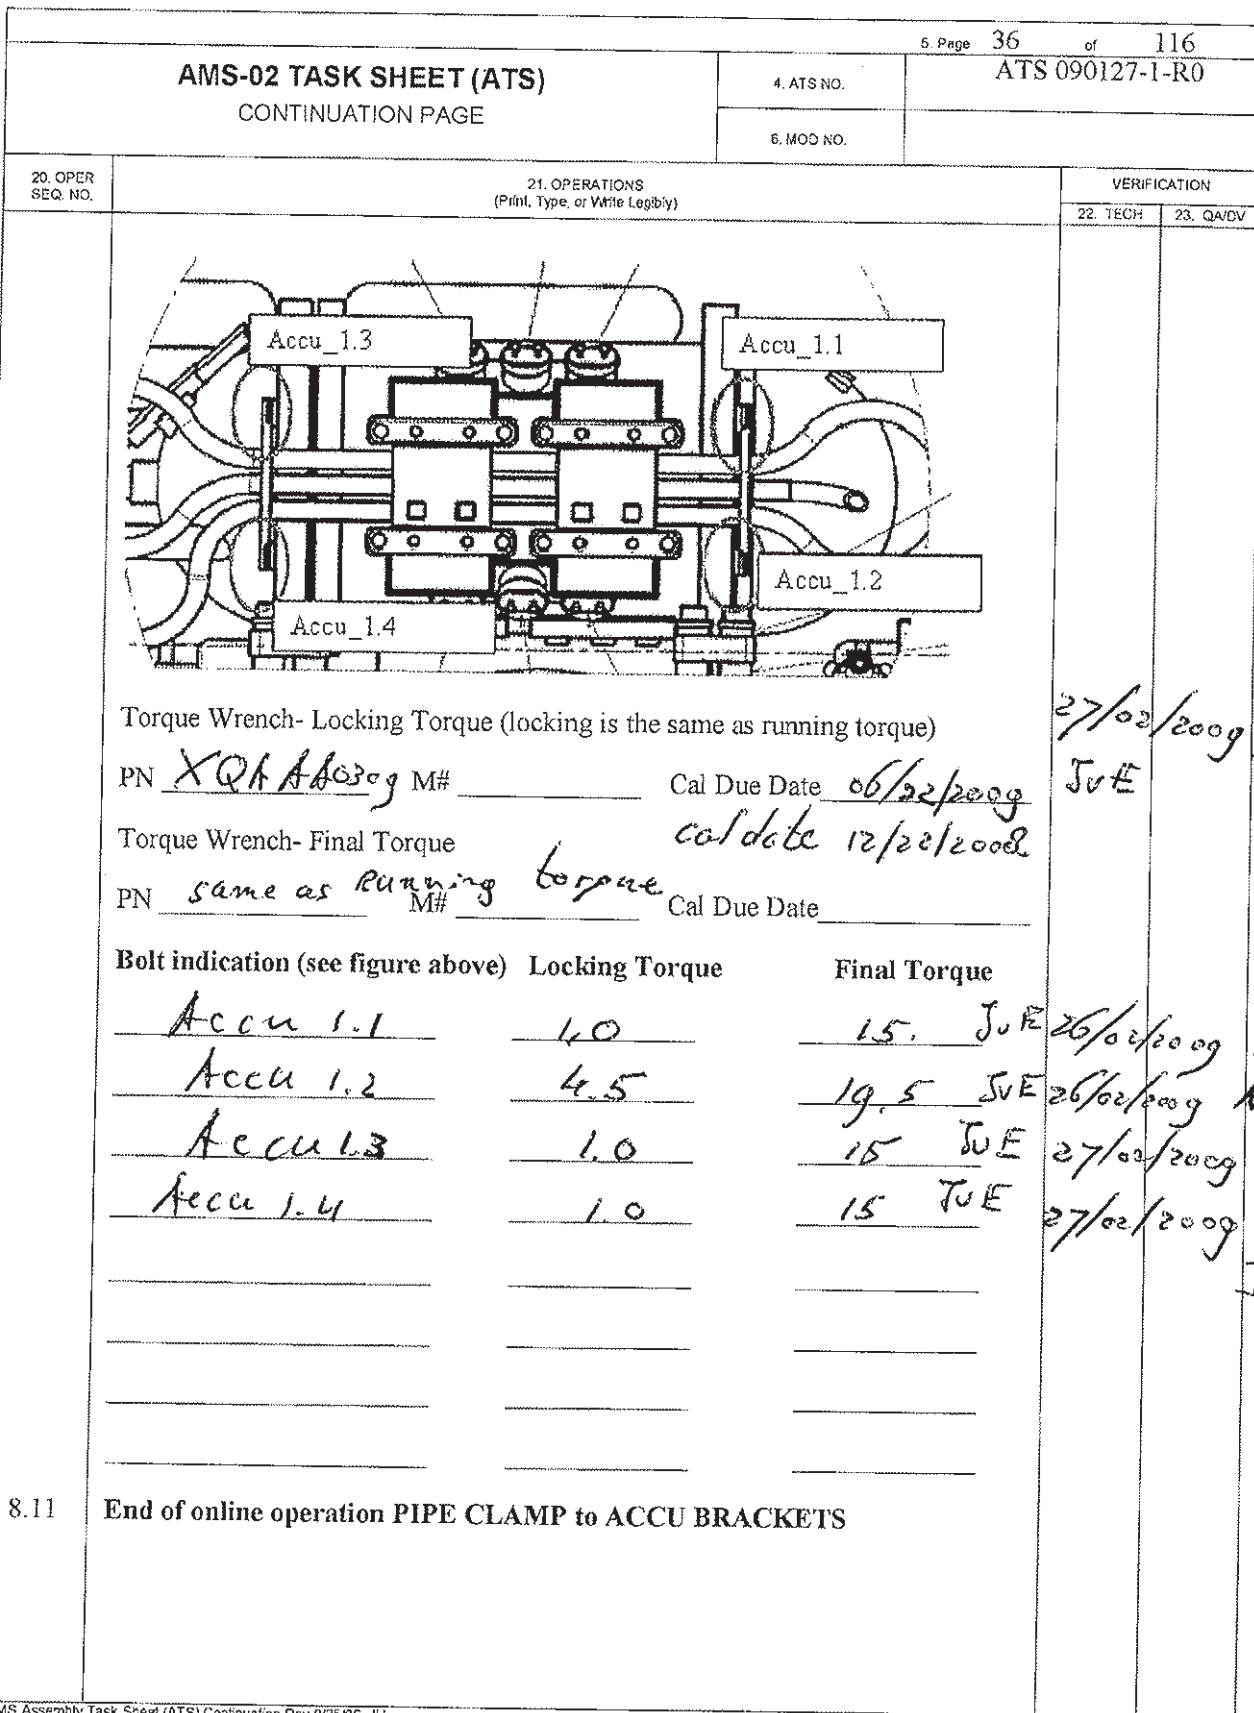 5. Page 36 of 116
AMS-02 TASK SHEET (ATS)
CONTINUATION PAGE
4. ATS NO.
ATS 090127-1-R0
6. MOD NO.
20. OPER
SEQ. NO.
21. OPERATIONS
(Print, Type, or Write Legibly)
VERIFICATION
22. TECH
23. QA/DV
Accu_1.3
Accu_1.1
Accu_1.2
Accu_1.4
Torque Wrench- Locking Torque (locking is the same as running torque) 27/02/2009
PN XQAAA0309 M# Cal Due Date 06/22/2009 JvE
Torque Wrench- Final Torque cal date 12/22/2008
PN same as Running torque M# Cal Due Date
Bolt indication (see figure above) Locking Torque Final Torque
Accu 1.1 1,0 15. JvE 26/02/2009
Accu 1.2 4.5 19.5 JvE 26/02/2009
Accu 1.3 1.0 15 JvE 27/02/2009
Accu 1.4 1.0 15 JvE 27/02/2009
8.11 End of online operation PIPE CLAMP to ACCU BRACKETS